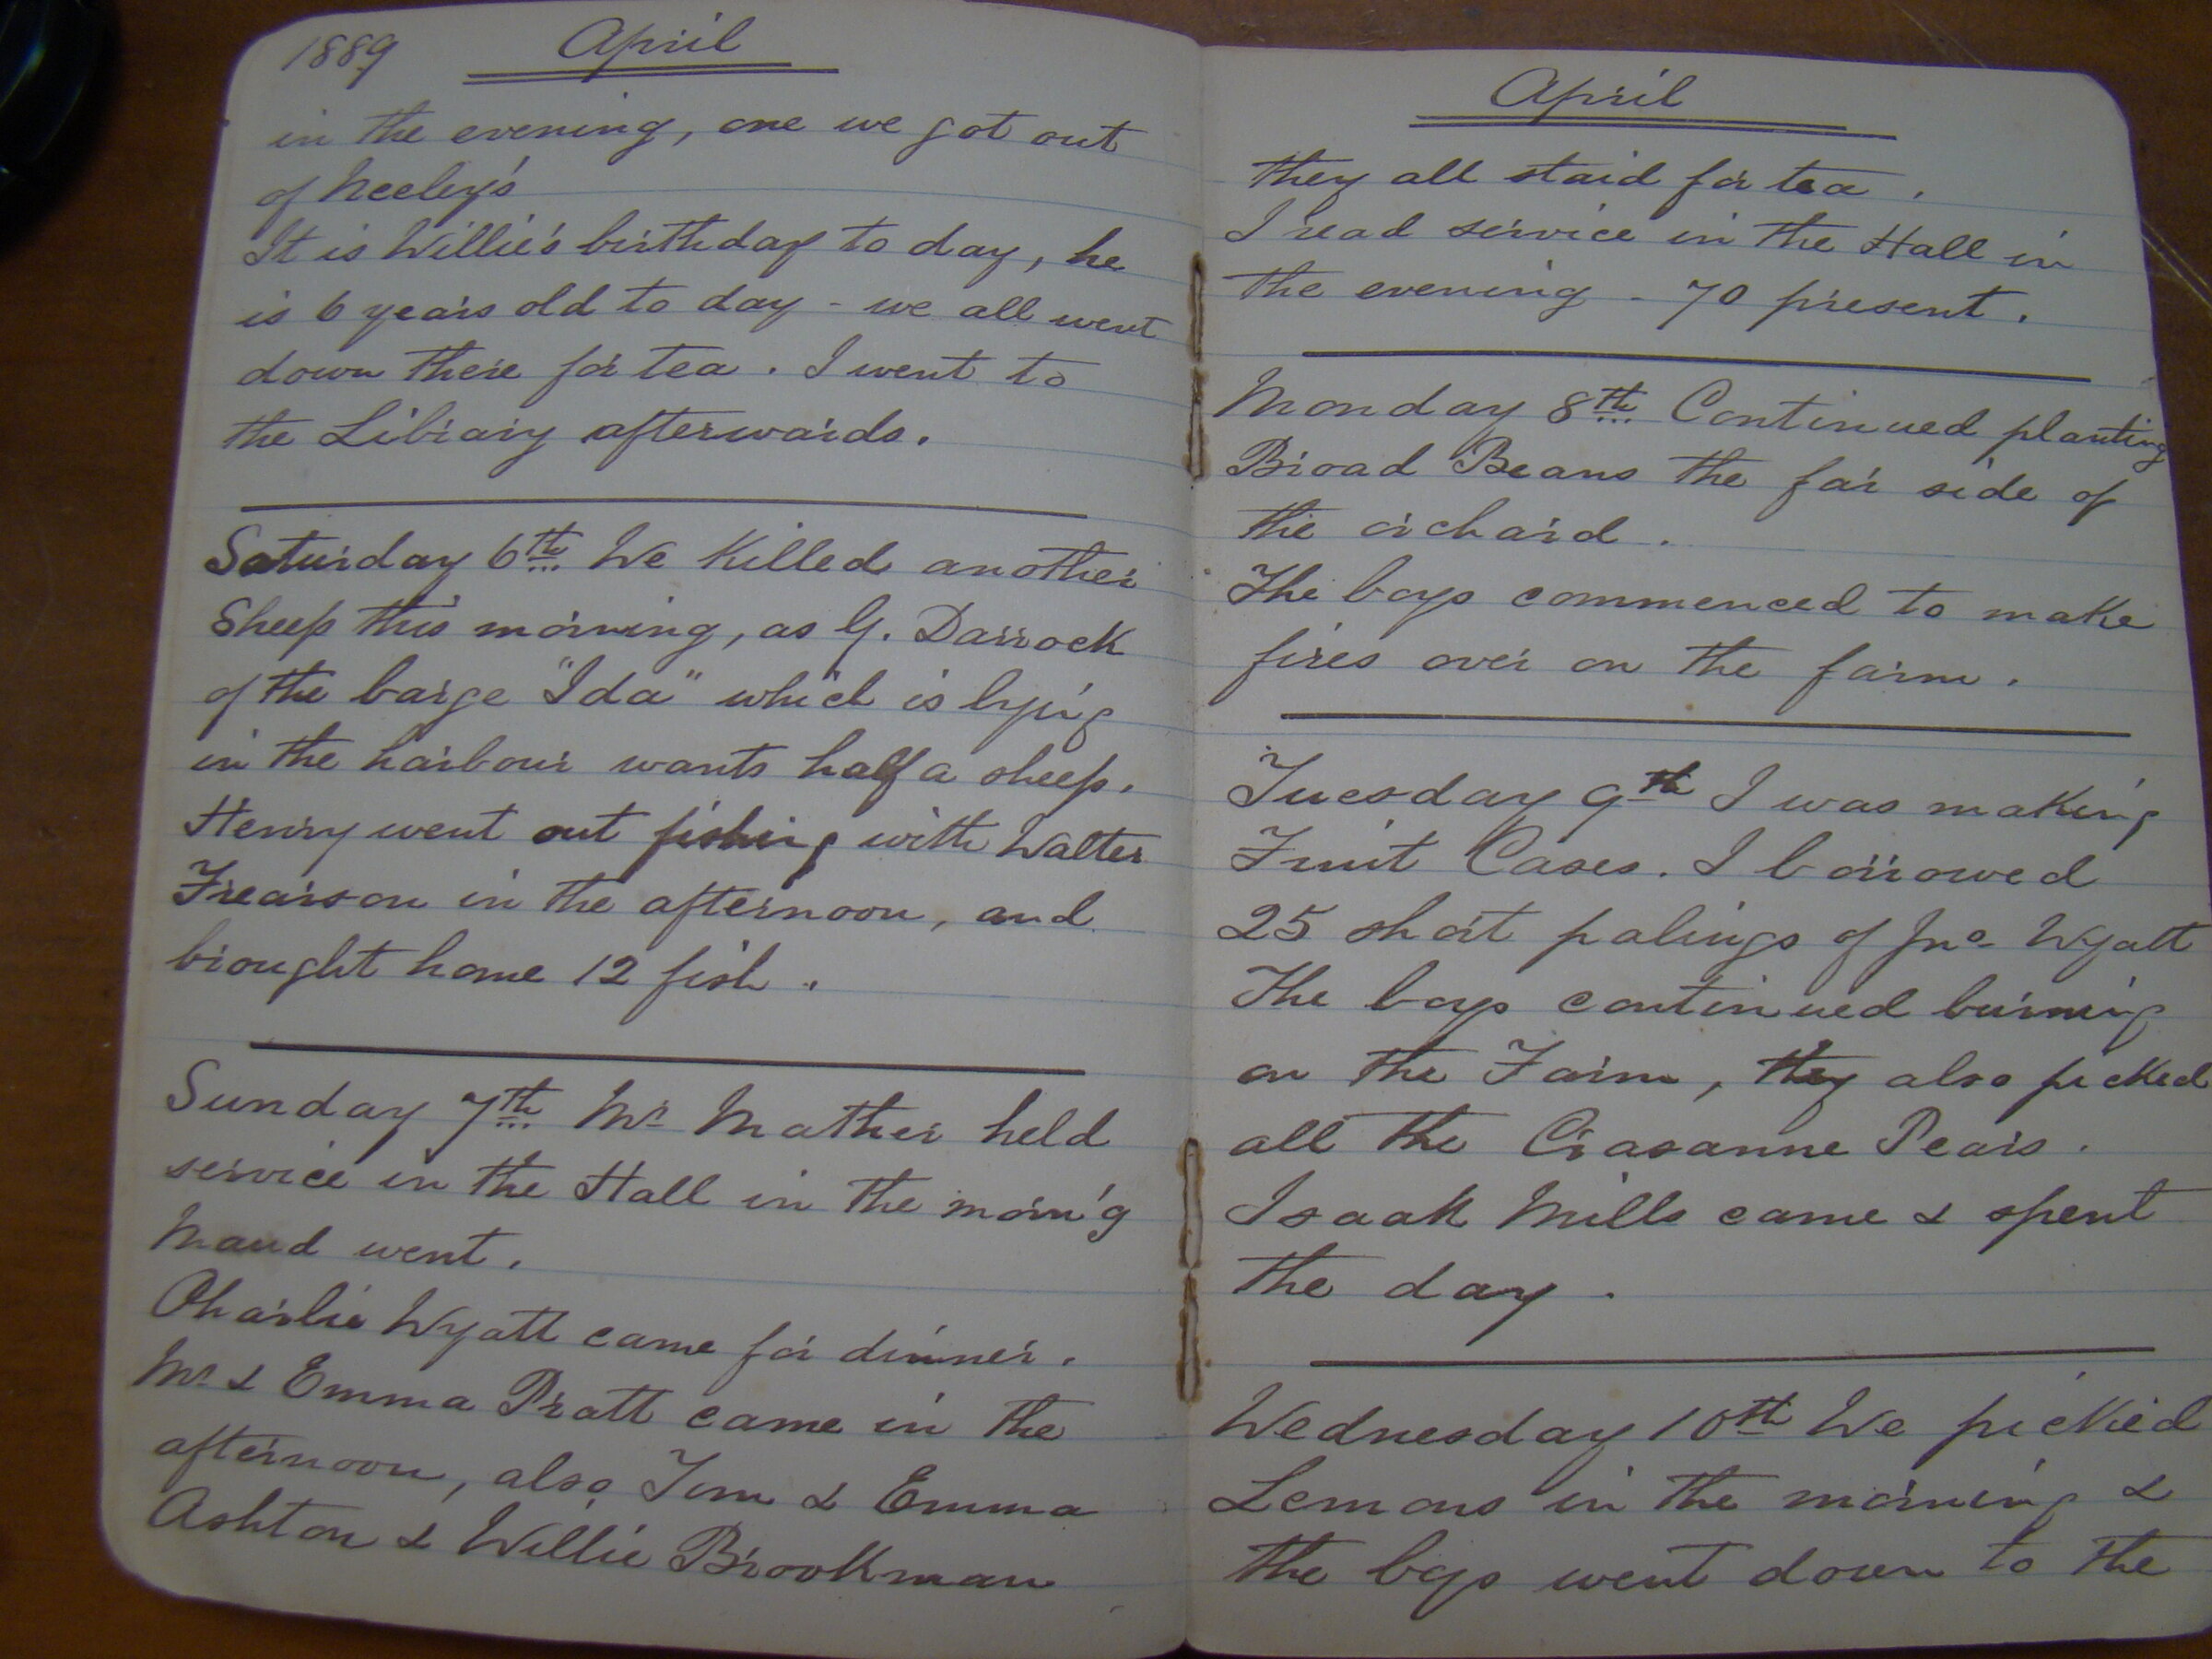 1889 April
in the evening, one we got out
of Neeley's
It is Willie's birthday to day, he
is 6 years old to day - we all went
down there for tea. I went to
the Library afterwards.
Saturday 6th We Killed another
Sheep this morning, as G. Darrock
of the barge "Ida" which is lying
in the harbour wants half a sheep.
Henry went out fishing with Walter
Frearson in the afternoon, and
brought home 12 fish.
Sunday 7th Mr Mather held
service in the Hall in the morn'g
Maud went.
Charlie Wyatt came for dinner.
Mr & Emma Pratt came in the
afternoon, also Tom & Emma
Ashton & Willie Brookman
April
they all staid for tea.
I read service in the Hall in
the evening - 70 present.
Monday 8th Continued planting
Broad Beans the far side of
the orchard.
The boys commenced to make
fires over on the farm.
Tuesday 9th I was making
Fruit Cases. I borrowed
25 short palings of Jno Wyatt
The boys continued burning
on the Farm, they also picked
all the Crasanne Pears.
Isaak Mills came & spent
the day.
Wednesday 10th We picked
Lemons in the morning &
the boys went down to the